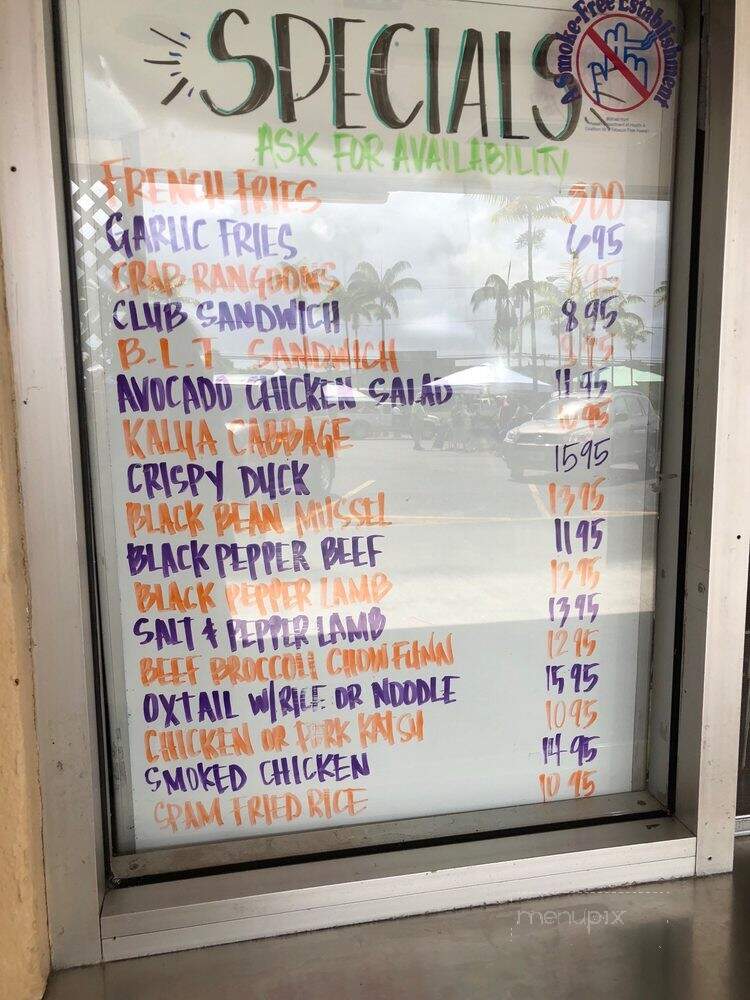 SPECIALS
A Smoke-Free Establishment
ASK FOR AVAILABILITY
FRENCH FRIES 500
GARLIC FRIES 695
CRAB RANGOONS 95
CLUB SANDWICH 895
B.L.T SANDWICH
AVOCADO CHICKEN SALAD 1195
KALUA CABBAGE 1095
CRISPY DUCK 1595
BLACK BEAN MUSSEL 1395
BLACK PEPPER BEEF 1195
BLACK PEPPER LAMB 1395
SALT & PEPPER LAMB 1395
BEEF BROCCOLI CHOW FUNN 1295
OXTAIL W/RICE OR NOODLE 1595
CHICKEN OR PORK KATSU 1095
SMOKED CHICKEN 1495
SPAM FRIED RICE 1095
menupix